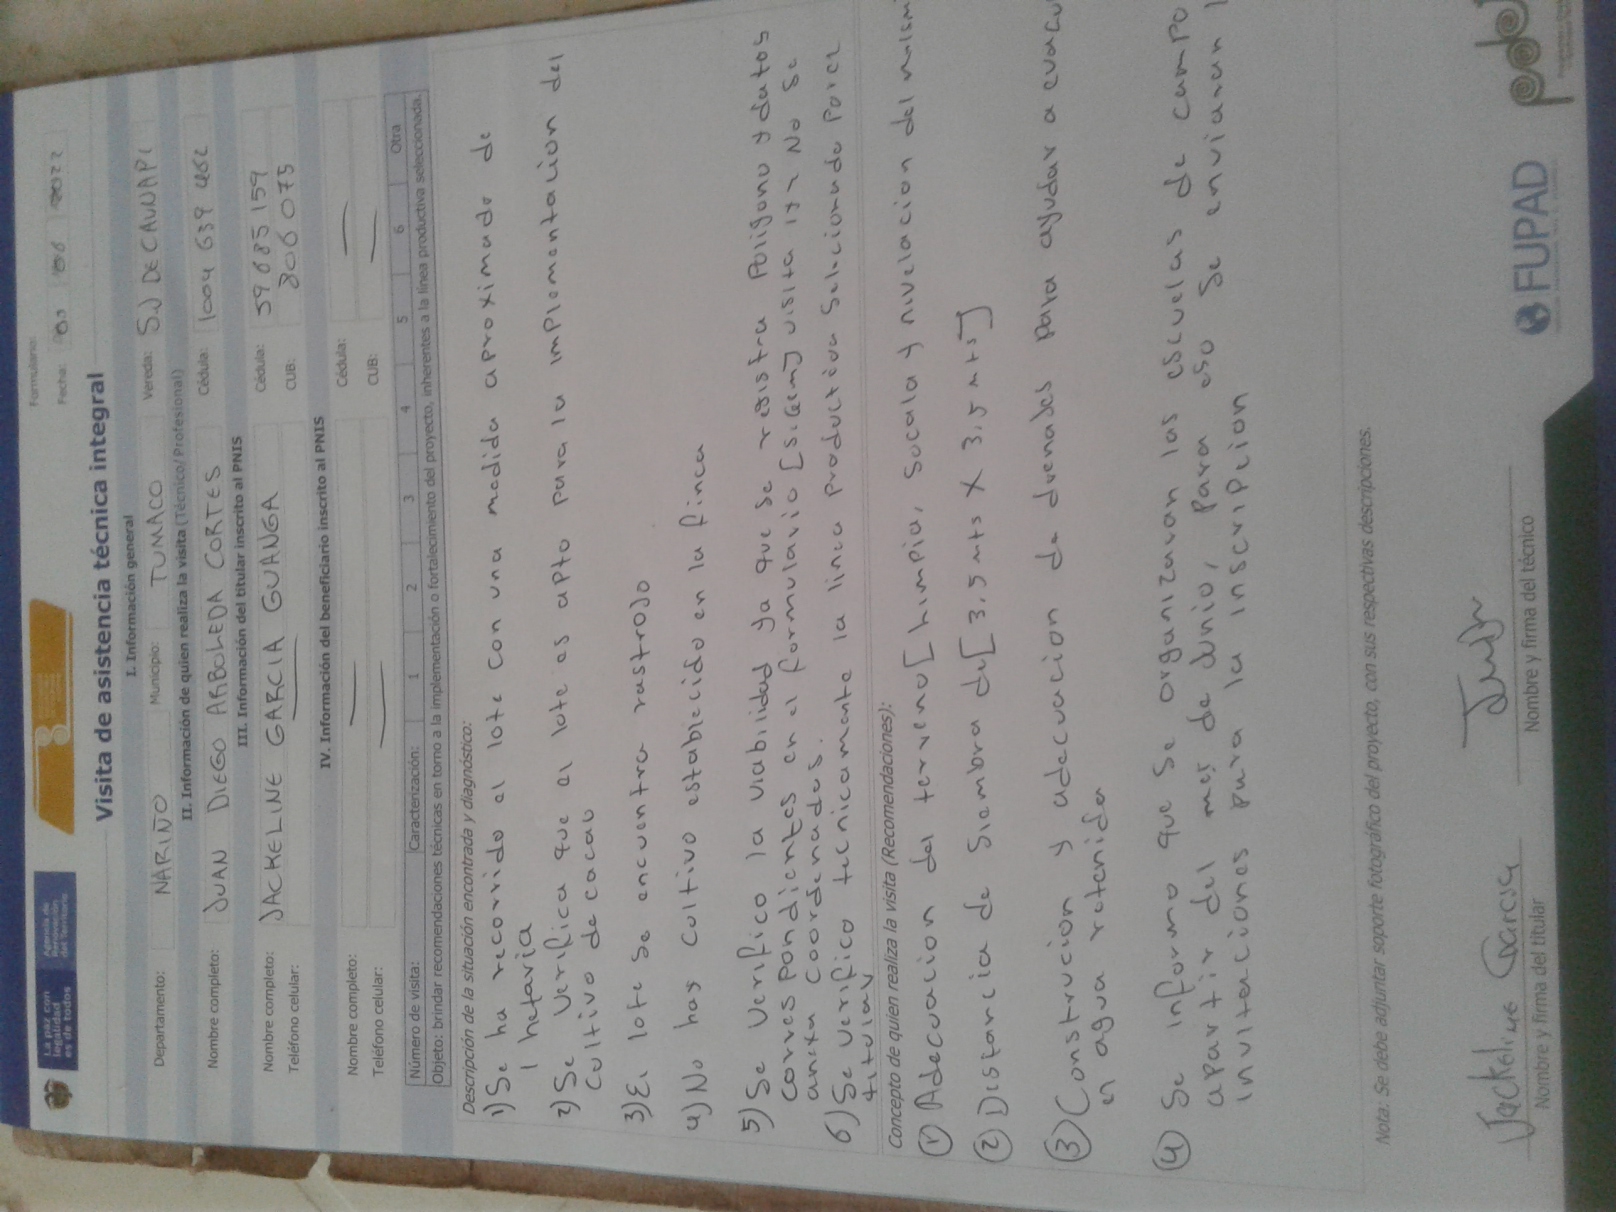 La paz con
legalidad
es de todos
Agencia de
Renovación
del Territorio
Formulario:
Fecha: 2022
Visita de asistencia técnica integral
I. Información general
Departamento: NARIÑO Municipio: TUMACO Vereda: S.J DE CAUNAPI
II. Información de quien realiza la visita (Técnico/ Profesional)
Nombre completo: JUAN DIEGO ARBOLEDA CORTES Cédula: 1004 639
III. Información del titular inscrito al PNIS
Nombre completo: JACKELINE GARCIA GUANGA Cédula: 59 685 159
Teléfono celular: — CUB: 806 075
IV. Información del beneficiario inscrito al PNIS
Nombre completo: — Cédula: —
Teléfono celular: — CUB: —
Número de visita: Caracterización: 1 2 3 4 5 6 Otra
Objeto: brindar recomendaciones técnicas en torno a la implementación o fortalecimiento del proyecto, inherentes a la línea productiva seleccionada.
Descripción de la situación encontrada y diagnóstico:
1) Se ha recorrido el lote con una medida aproximado de
1 hetaria
2) Se verifica que el lote es apto para la implementacion del
cultivo de cacao
3) El lote se encuentra rastrojo
4) No hay cultivo establecido en la finca
5) Se verifico la viabilidad ya que se registra Poligono y datos
correspondientes en el formulario [sigem] visita 1 y 2 No se
anexa coordenadas.
6) Se verifico tecnicamente la linea productiva selecionada por el
titular
Concepto de quien realiza la visita (Recomendaciones):
① Adecuacion del terreno [Limpia, Socala y nivelacion del mism
② Distancia de siembra de [3,5 mts X 3,5 mts]
③ Construcion y adecuacion de drenajes para ayudar a evacu
en agua retenida
④ Se informo que se organizaran las escuelas de campo
apartir del mes de Junio, para eso se enviaran
invitaciones para la inscripcion
Nota: Se debe adjuntar soporte fotográfico del proyecto, con sus respectivas descripciones.
Jackeline Garcia
Nombre y firma del titular
Nombre y firma del técnico
FUPAD